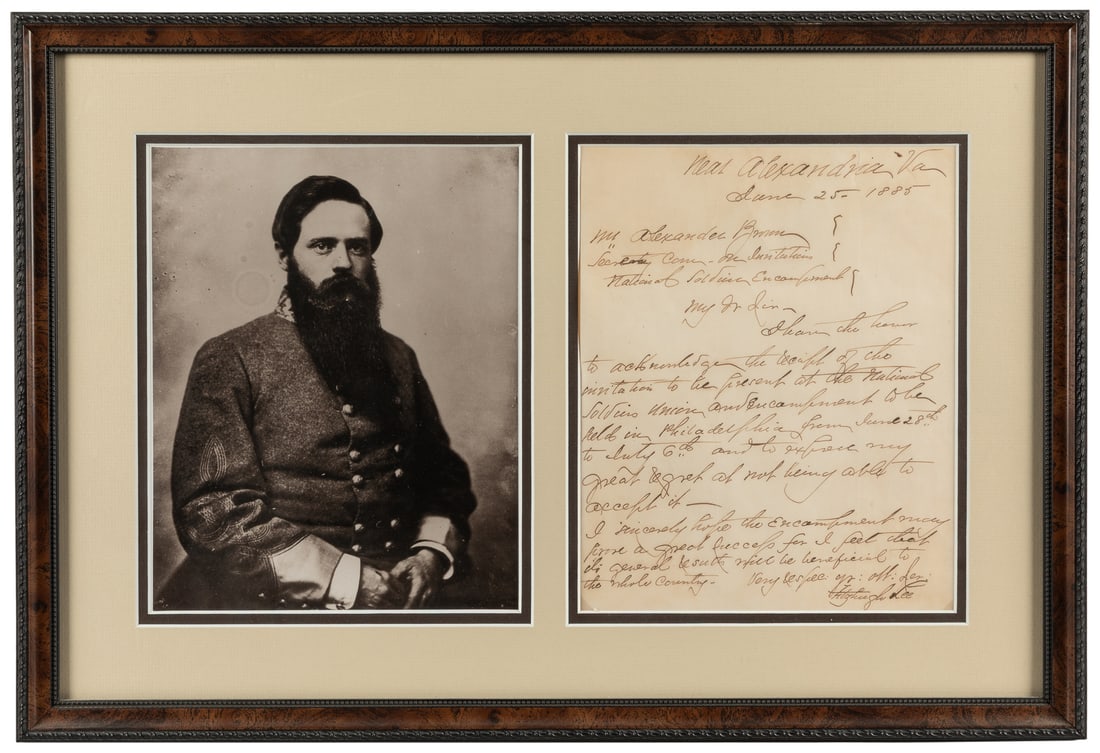 Near Alexandria Va
June 25 - 1885
Mr Alexander Brown
Secretary Com - on Invitations
National Soldiers Encampment
My Dr Sir -
I have the honor
to acknowledge the receipt of the
invitation to be present at the National
Soldiers Union and Encampment to be
held in Philadelphia from June 28th
to July 6th and to express my
great regret at not being able to
accept it -
I sincerely hope the Encampment may
prove a great success for I feel that
its general results will be beneficial to
the whole country - Very respec yr: ob: Ser:
Fitzhugh Lee